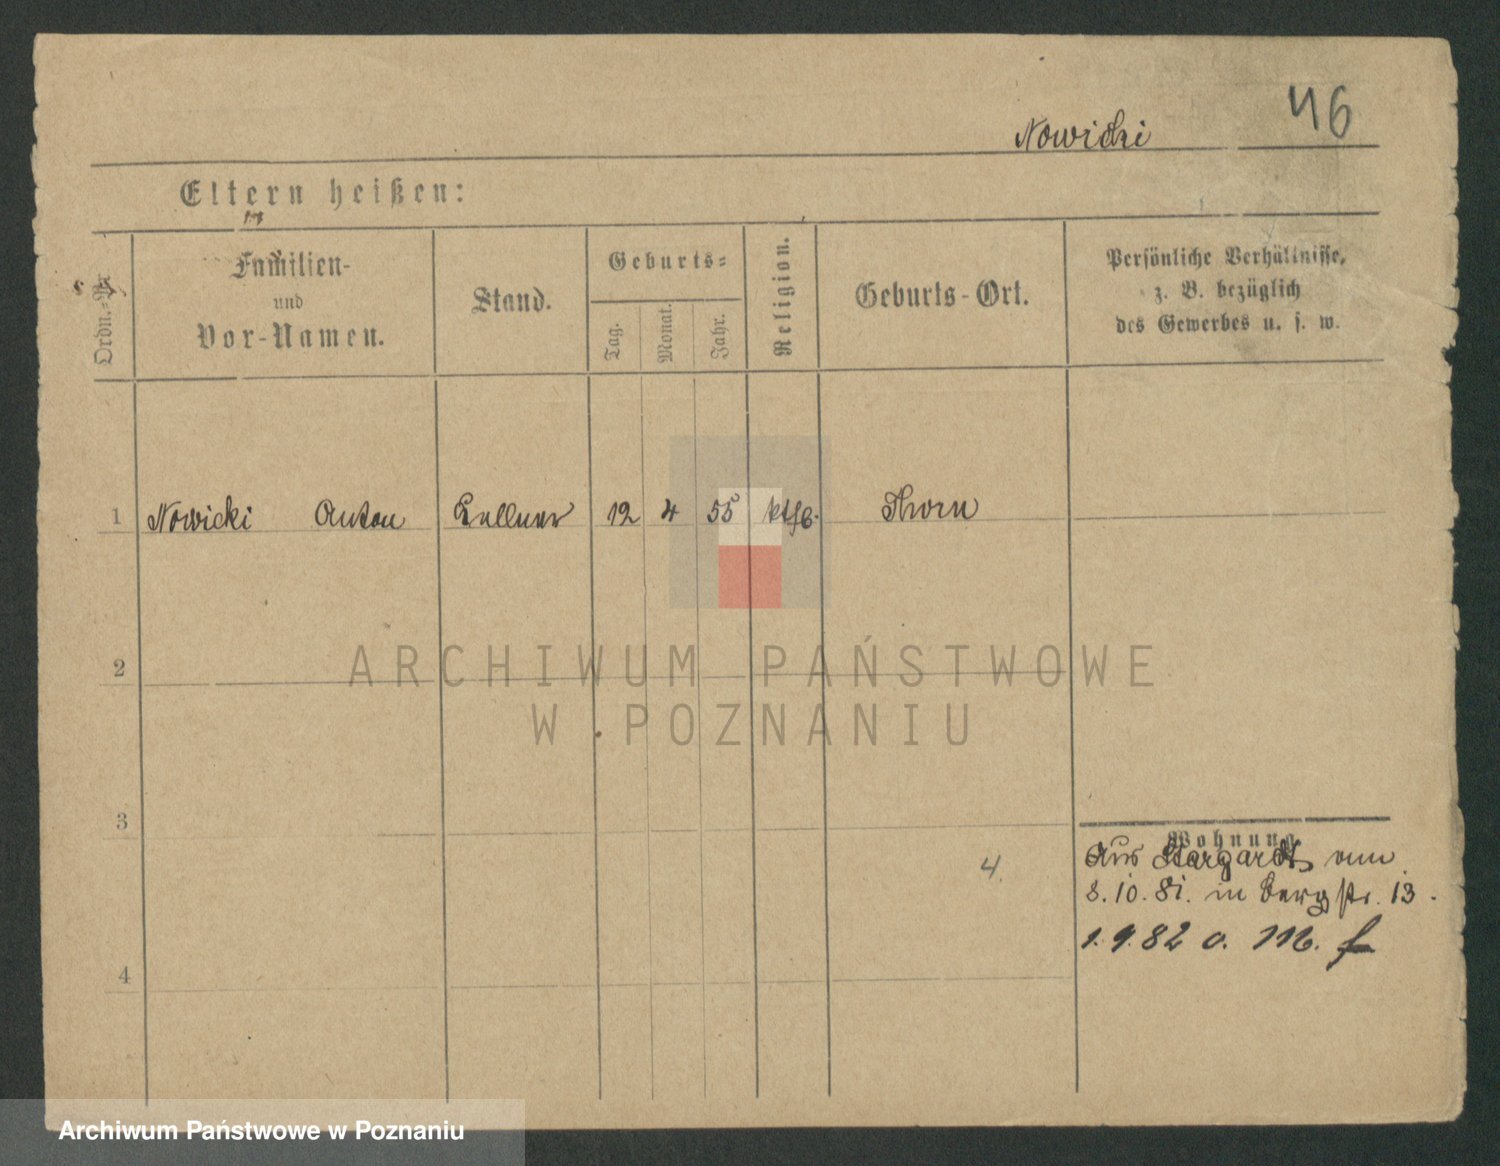 46
Nowicki
Eltern heißen:
Ordn.-Nr
Familien-
und
Vor-Namen.
Stand.
Geburts-
Tag.
Monat.
Jahr.
Religion.
Geburts-Ort.
Persönliche Verhältnisse,
z. B. bezüglich
des Gewerbes u. s. w.
1 Nowicki Anton Kellner 12 4 55 kth. Thorn
ARCHIWUM PAŃSTWOWE
W POZNANIU
2
3
Wohnung
Aus Stargardt vom
8.10.81. in Bergstr. 13.
4.
1.9.82 o. M.
4
Archiwum Państwowe w Poznaniu